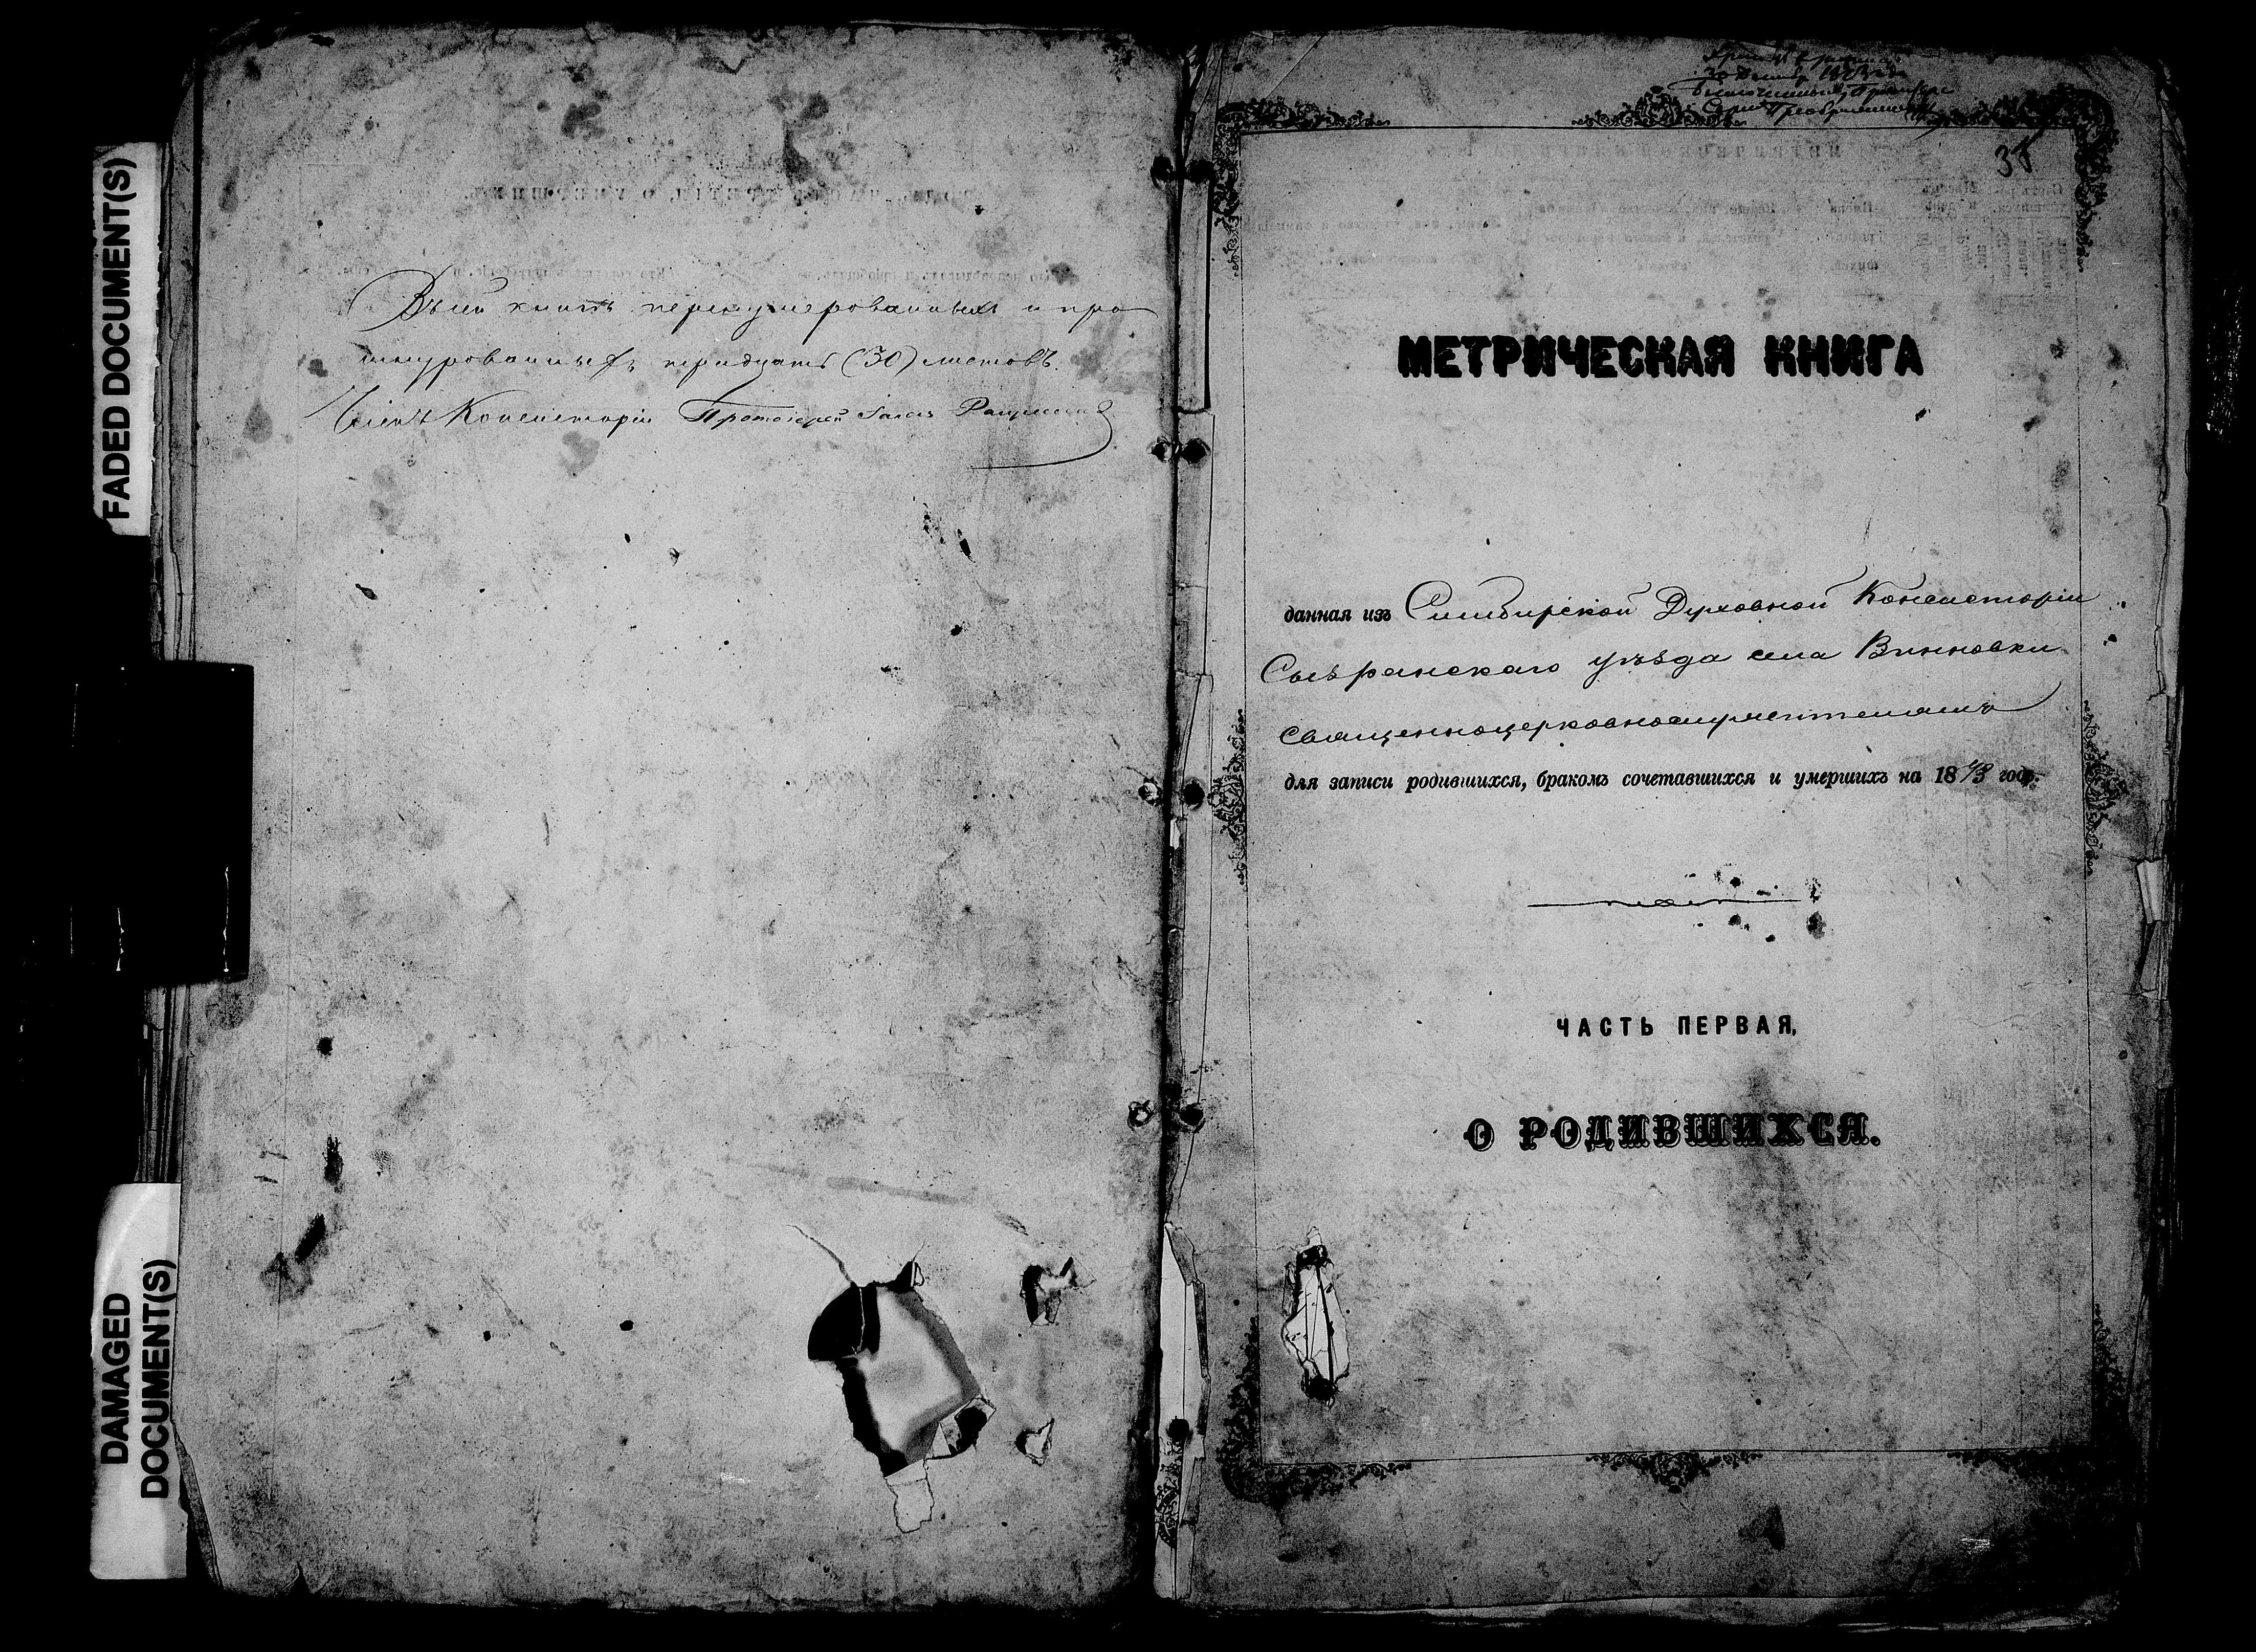 FADED DOCUMENT(S)
DAMAGED
DOCUMENT(S)
Въ сей книгѣ перенумерованныхъ и про
шнурованныхъ тридцать (30) листовъ.
Членъ Консисторіи Протоіерей
38
МЕТРИЧЕСКАЯ КНИГА
данная изъ Симбирской Духовной Консисторіи
Сызранскаго уѣзда села Винновки
священноцерковнослужителямъ
для записи родившихся, бракомъ сочетавшихся и умершихъ на 1873 годъ.
ЧАСТЬ ПЕРВАЯ,
О РОДИВШИХСЯ.